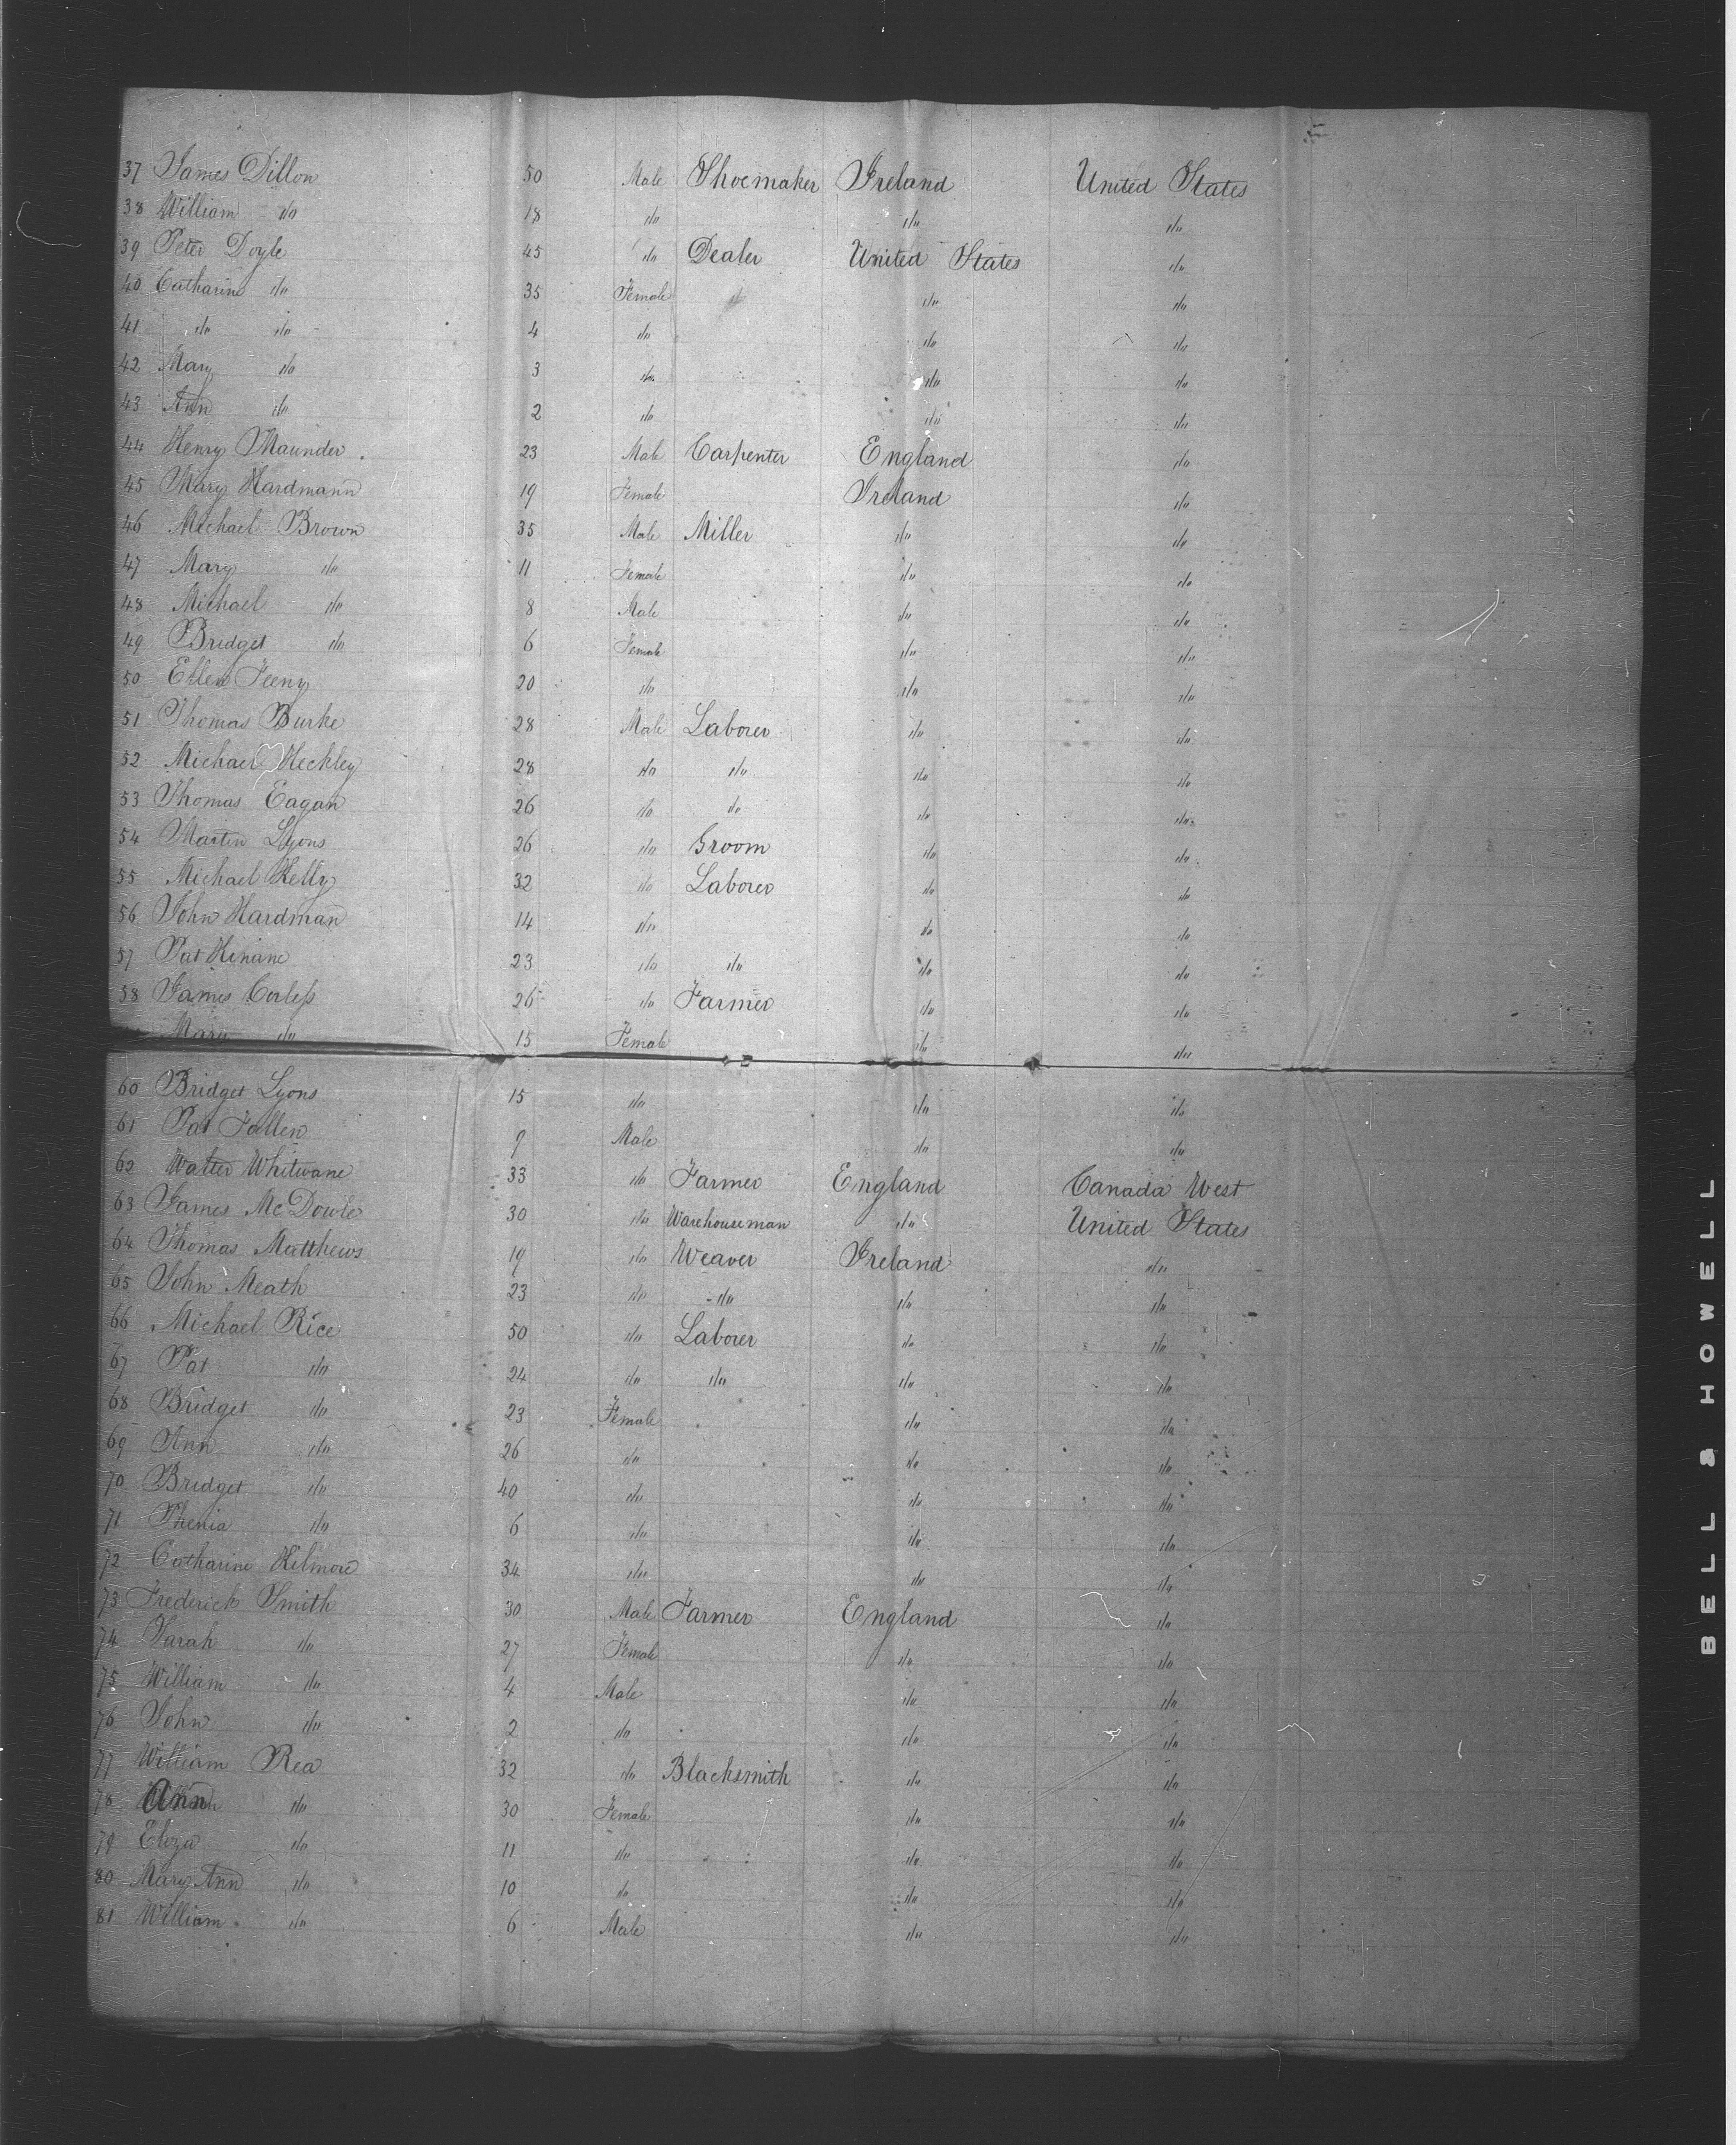 37 James Dillon 50 Male Shoemaker Ireland United States
38 William do 18 do do do
39 Peter Doyle 45 do Dealer United States do
40 Catharine do 35 Female do do do
41 do do 4 do do do
42 Mary do 3 do do do
43 Ann do 2 do do do
44 Henry Maunder 23 Male Carpenter England do
45 Mary Hardmann 19 Female Ireland do
46 Michael Brown 35 Male Miller do do
47 Mary do 11 Female do do
48 Michael do 8 Male do do
49 Bridget do 6 Female do do
50 Ellen Feeny 20 do do do
51 Thomas Burke 28 Male Laborer do do
52 Michael Heckley 28 do do do do
53 Thomas Eagan 26 do do do do
54 Martin Lyons 26 do Groom do do
55 Michael Kelly 32 do Laborer do do
56 John Hardman 14 do do do
57 Pat Kinane 23 do do do do
58 James Corless 26 do Farmer do do
Mary do 15 Female do do
60 Bridget Lyons 15 do do do
61 Pat Fallen 9 Male do do
62 Walter Whitwane 33 do Farmer England Canada West
63 James McDowle 30 do Warehouseman do United States
64 Thomas Matthews 19 do Weaver Ireland do
65 John Meath 23 do do do do
66 Michael Rice 50 do Laborer do do
67 Pat do 24 do do do do
68 Bridget do 23 Female do do
69 Ann do 26 do do do
70 Bridget do 40 do do do
71 Phenia do 6 do do do
72 Catharine Kilmore 34 do do do
73 Frederick Smith 30 Male Farmer England do
74 Sarah do 27 Female do do
75 William do 4 Male do do
76 John do 2 do do do
77 William Rea 32 do Blacksmith do do
78 Ann do 30 Female do do
79 Eliza do 11 do do do
80 Mary Ann do 10 do do do
81 William do 6 Male do do
BELL & HOWELL